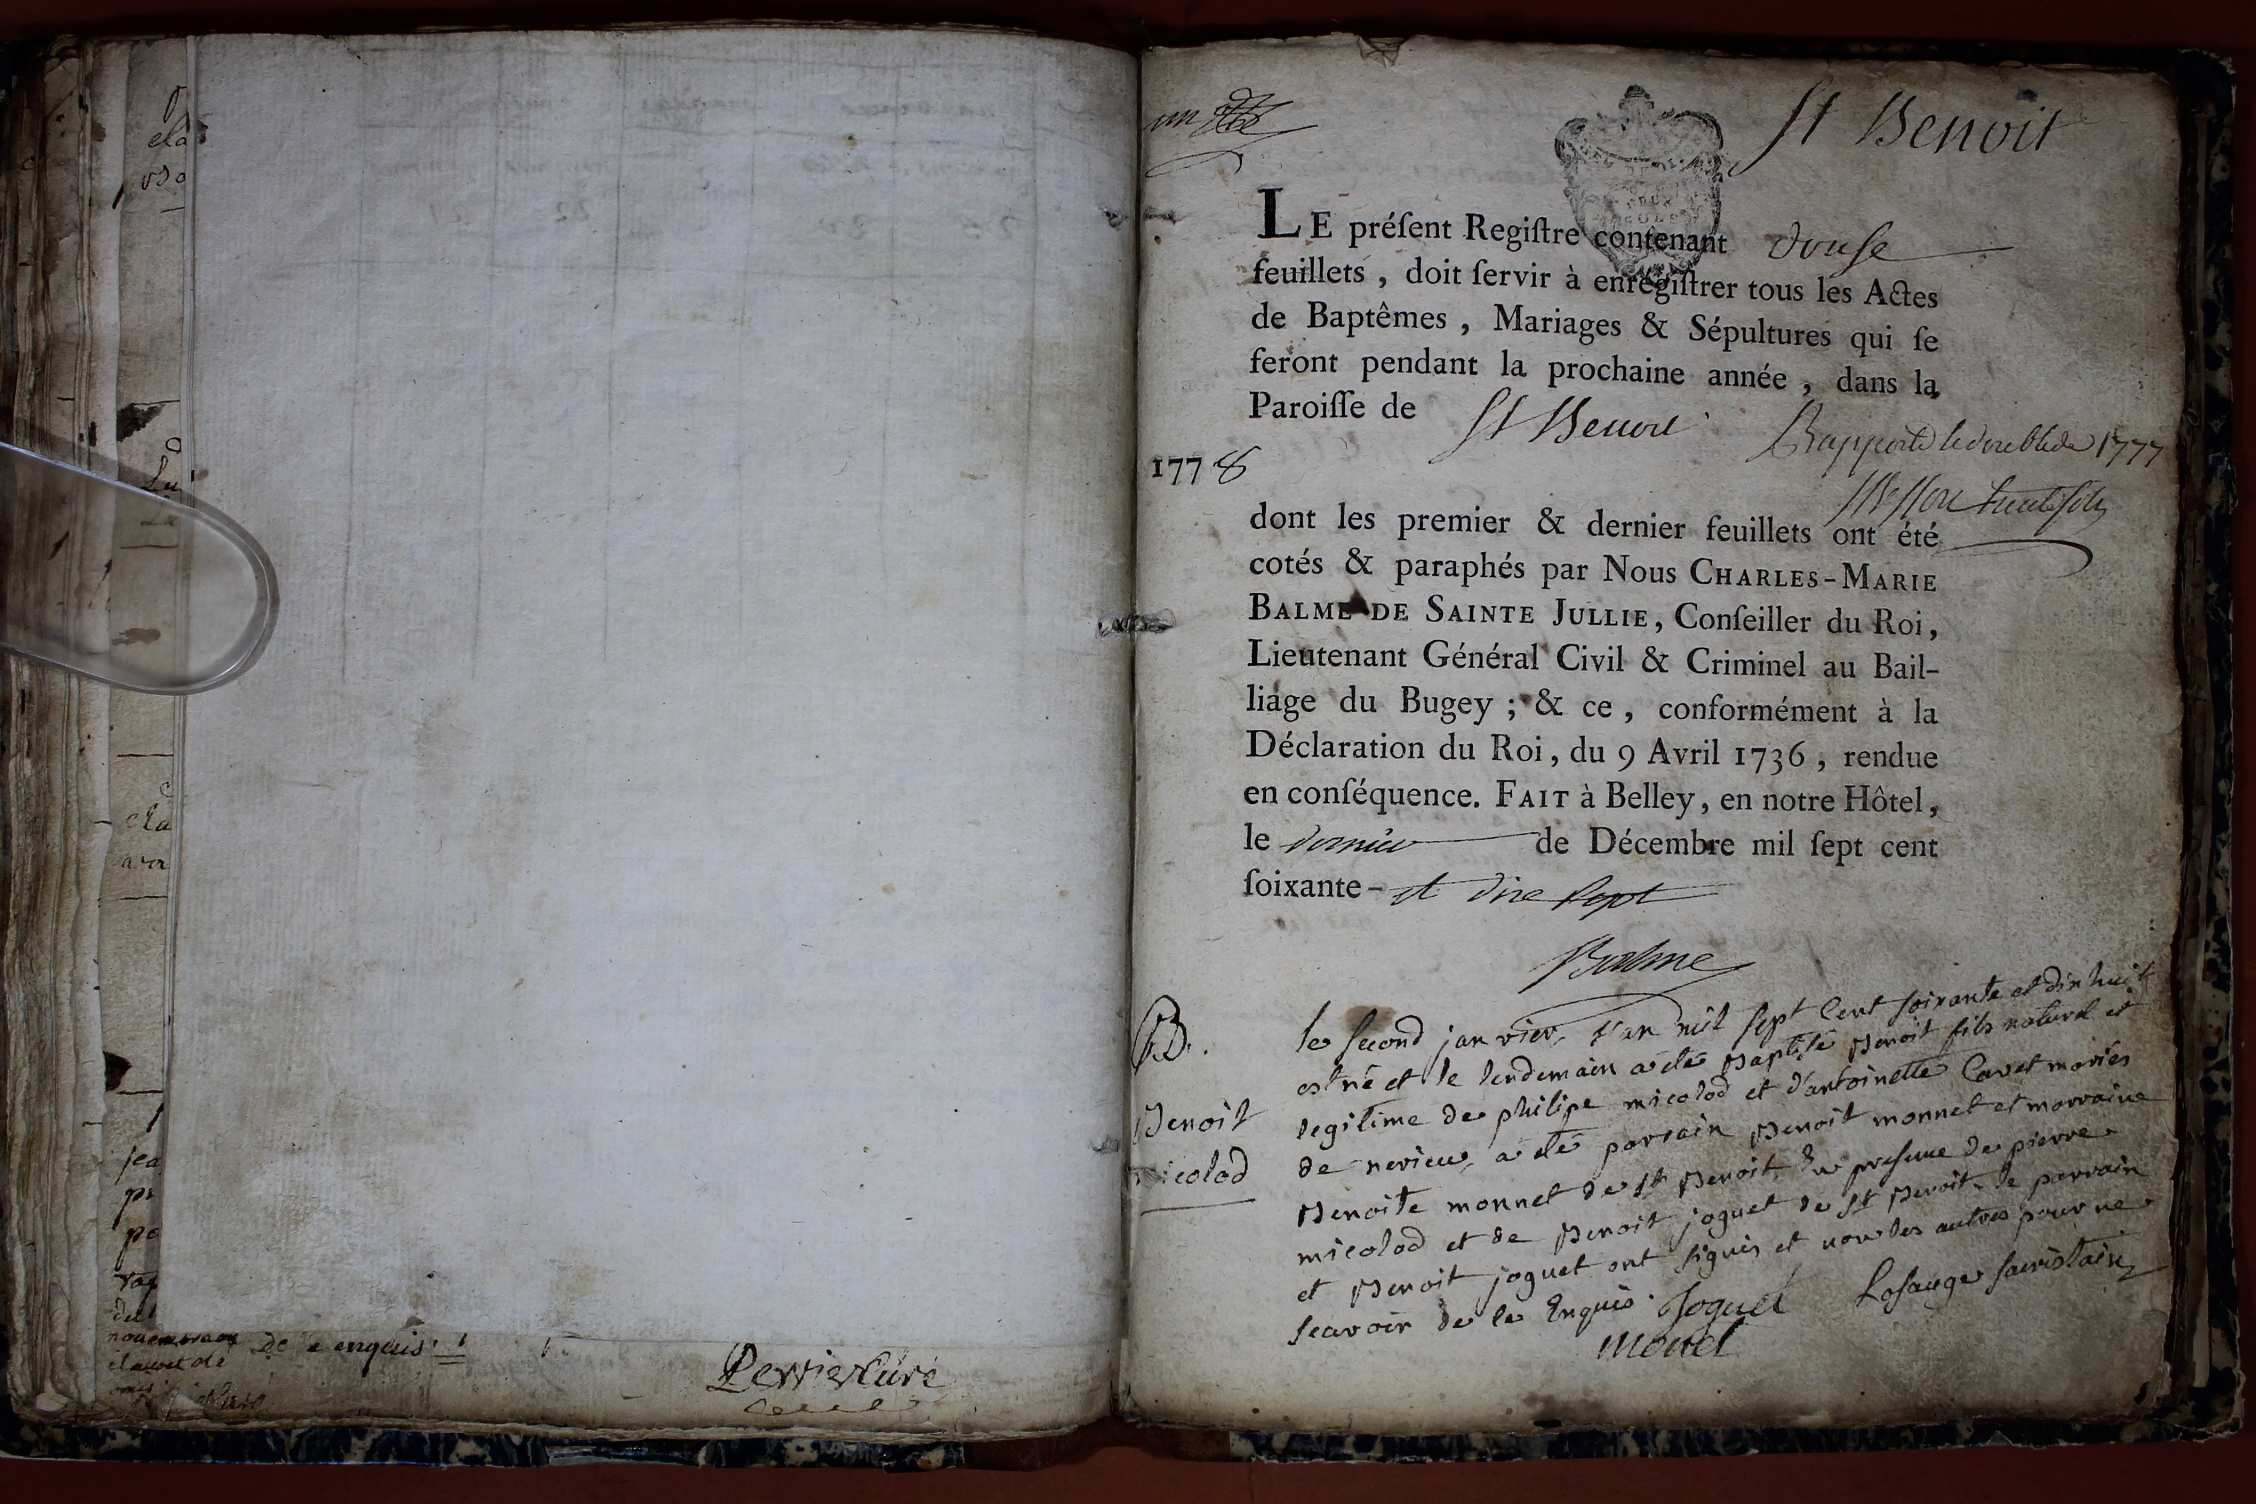 ela
vso
Lu
La
ela
avoi
sea
pr
pe
rag
del
de le enquis
Perrier Curé
un
St Benoit
LE préſent Regiſtre contenant douse
feuillets, doit ſervir à enregiſtrer tous les Actes
de Baptêmes, Mariages & Sépultures qui ſe
feront pendant la prochaine année, dans la
Paroiſſe de St Benoit
Rapporté le double de 1777
1778
dont les premier & dernier feuillets ont été
cotés & paraphés par Nous CHARLES-MARIE
BALME DE SAINTE JULLIE, Conſeiller du Roi,
Lieutenant Général Civil & Criminel au Bail-
liage du Bugey ; & ce, conformément à la
Déclaration du Roi, du 9 Avril 1736, rendue
en conſéquence. FAIT à Belley, en notre Hôtel,
le dernier de Décembre mil ſept cent
ſoixante- et dix sept
Balme
B.
Benoit
micolod
le second janvier, l'an mil sept cent soixante et dix huit
est né et le lendemain a été baptisé Benoit fils naturel et
legitime de philipe micolod et d'antoinette Cavet mariés
de nerieu, a été parrain Benoit monnet et marraine
Benoite monnet de st Benoit, En presence de pierre
micolod et de Benoit joguet de st Benoit, le parrain
et Benoit joguet ont signés et non les autres pour ne
scavoir de ce Enquis. Joguet Lasauge sacristain
monet